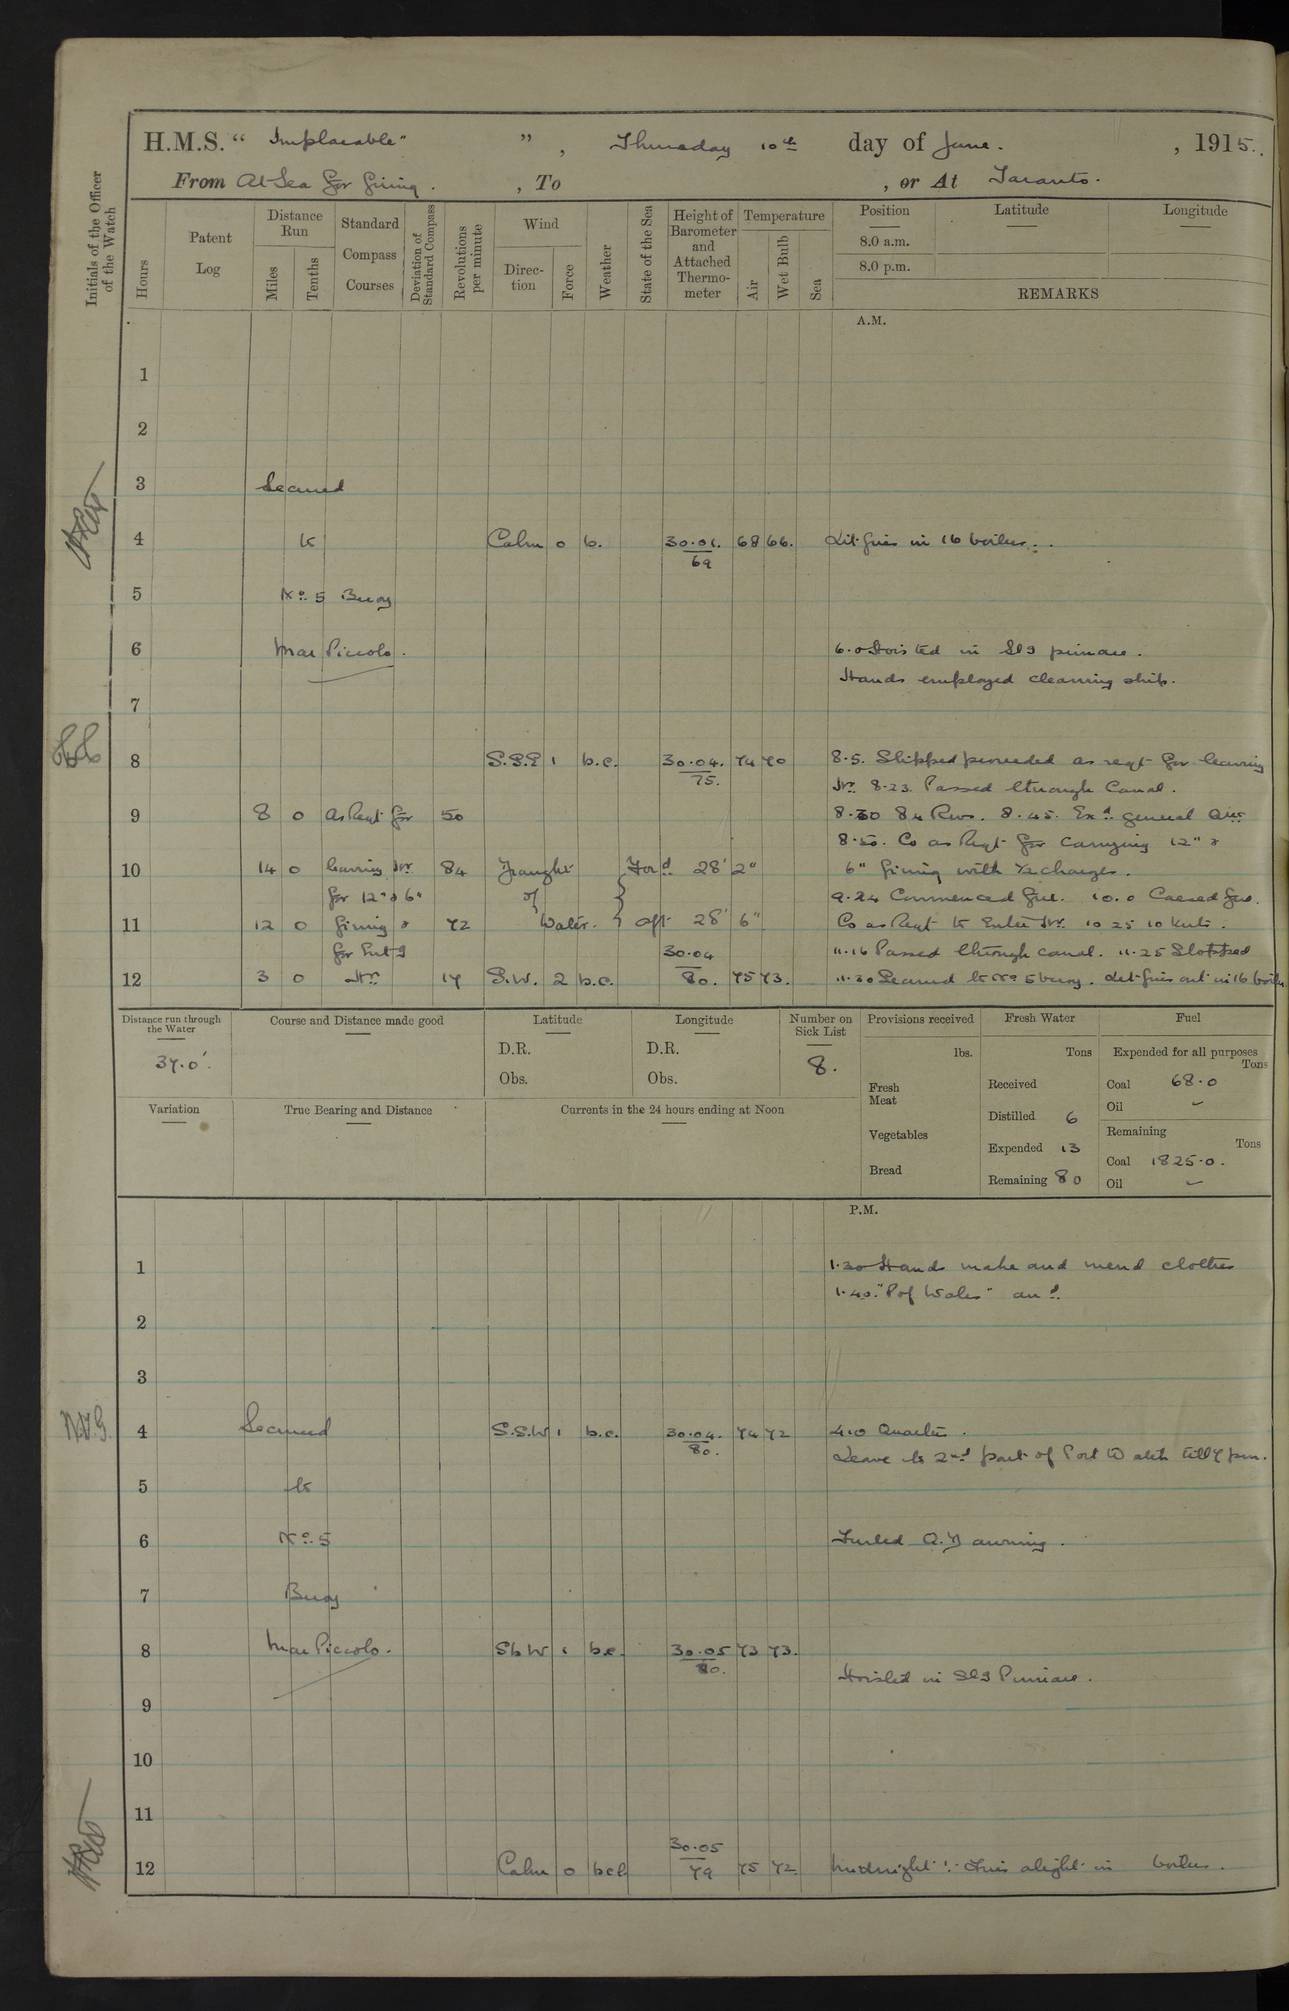 H.M.S. “ Implacable" ” , Thursday 10th day of June. , 1915.
From At Sea for firing. , To , or At Taranto.
Initials of the Officer of the Watch
Hours
Patent Log
Distance Run
Miles
Tenths
Standard Compass Courses
Deviation of Standard Compass
Revolutions per minute
Wind
Direction
Force
Weather
State of the Sea
Height of Barometer and Attached Thermometer
Temperature
Air
Wet Bulb
Sea
Position
8.0 a.m.
8.0 p.m.
Latitude
Longitude
REMARKS
A.M.
1
2
3 Secured
4 to Calm 0 b. 30.01. 68 66. Lit fires in 16 boilers.
69
5 No. 5 Buoy
6 Mar Piccolo. 6.0 Hoisted in Slg pinnace.
Hands employed cleaning ship.
7
8 S.S.E 1 b.c. 30.04. 74 70 8.5. Slipped proceeded as reqt for leaving
75. Hr. 8.23. Passed through Canal.
9 8 0 As Reqt for 50 8.30 84 Revs. 8.45. Exd general Qrs
8.50. Co as Reqt for carrying 12" &
10 14 0 leaving Hr 84 Draught Ford 28' 2" 6" firing with ½ charges.
for 12" & 6" of 9.24 Commenced fire. 10.0 Ceased fire.
11 12 0 firing & 72 Water. aft 28' 6" Co as Reqt to Enter Hr. 10 25 10 Knts.
for Entg 30.04 11.16 Passed through canal. 11.25 Stopped
12 3 0 Hr. 17 S.W. 2 b.c. 80. 75 73. 11.30 Secured to No 5 buoy. Let fires out in 16 boilers
Distance run through the Water
37.0'.
Course and Distance made good
Latitude
D.R.
Obs.
Longitude
D.R.
Obs.
Number on Sick List
8.
Provisions received
lbs.
Fresh Meat
Vegetables
Bread
Fresh Water
Tons
Received
Distilled 6
Expended 13
Remaining 80
Fuel
Expended for all purposes
Tons
Coal 68.0
Oil -
Remaining
Tons
Coal 1825.0.
Oil -
Variation
True Bearing and Distance
Currents in the 24 hours ending at Noon
P.M.
1 1.30 Hands make and mend clothes
1.40. "P of Wales" arrd.
2
3
4 Secured S.S.W 1 b.c. 30.04. 74 72 4.0 Quarters.
80. Leave to 2nd part of Port Watch till 7 pm.
5 to
6 No. 5 Furled Q.D awning.
7 Buoy
8 Mar Piccolo. S b W 1 b.c. 30.05 73 73.
80. Hoisted in Slg Pinnace.
9
10
11
30.05
12 Calm 0 bcl 79 75 72 Midnight :- Fires alight in boilers.
N.V.G.